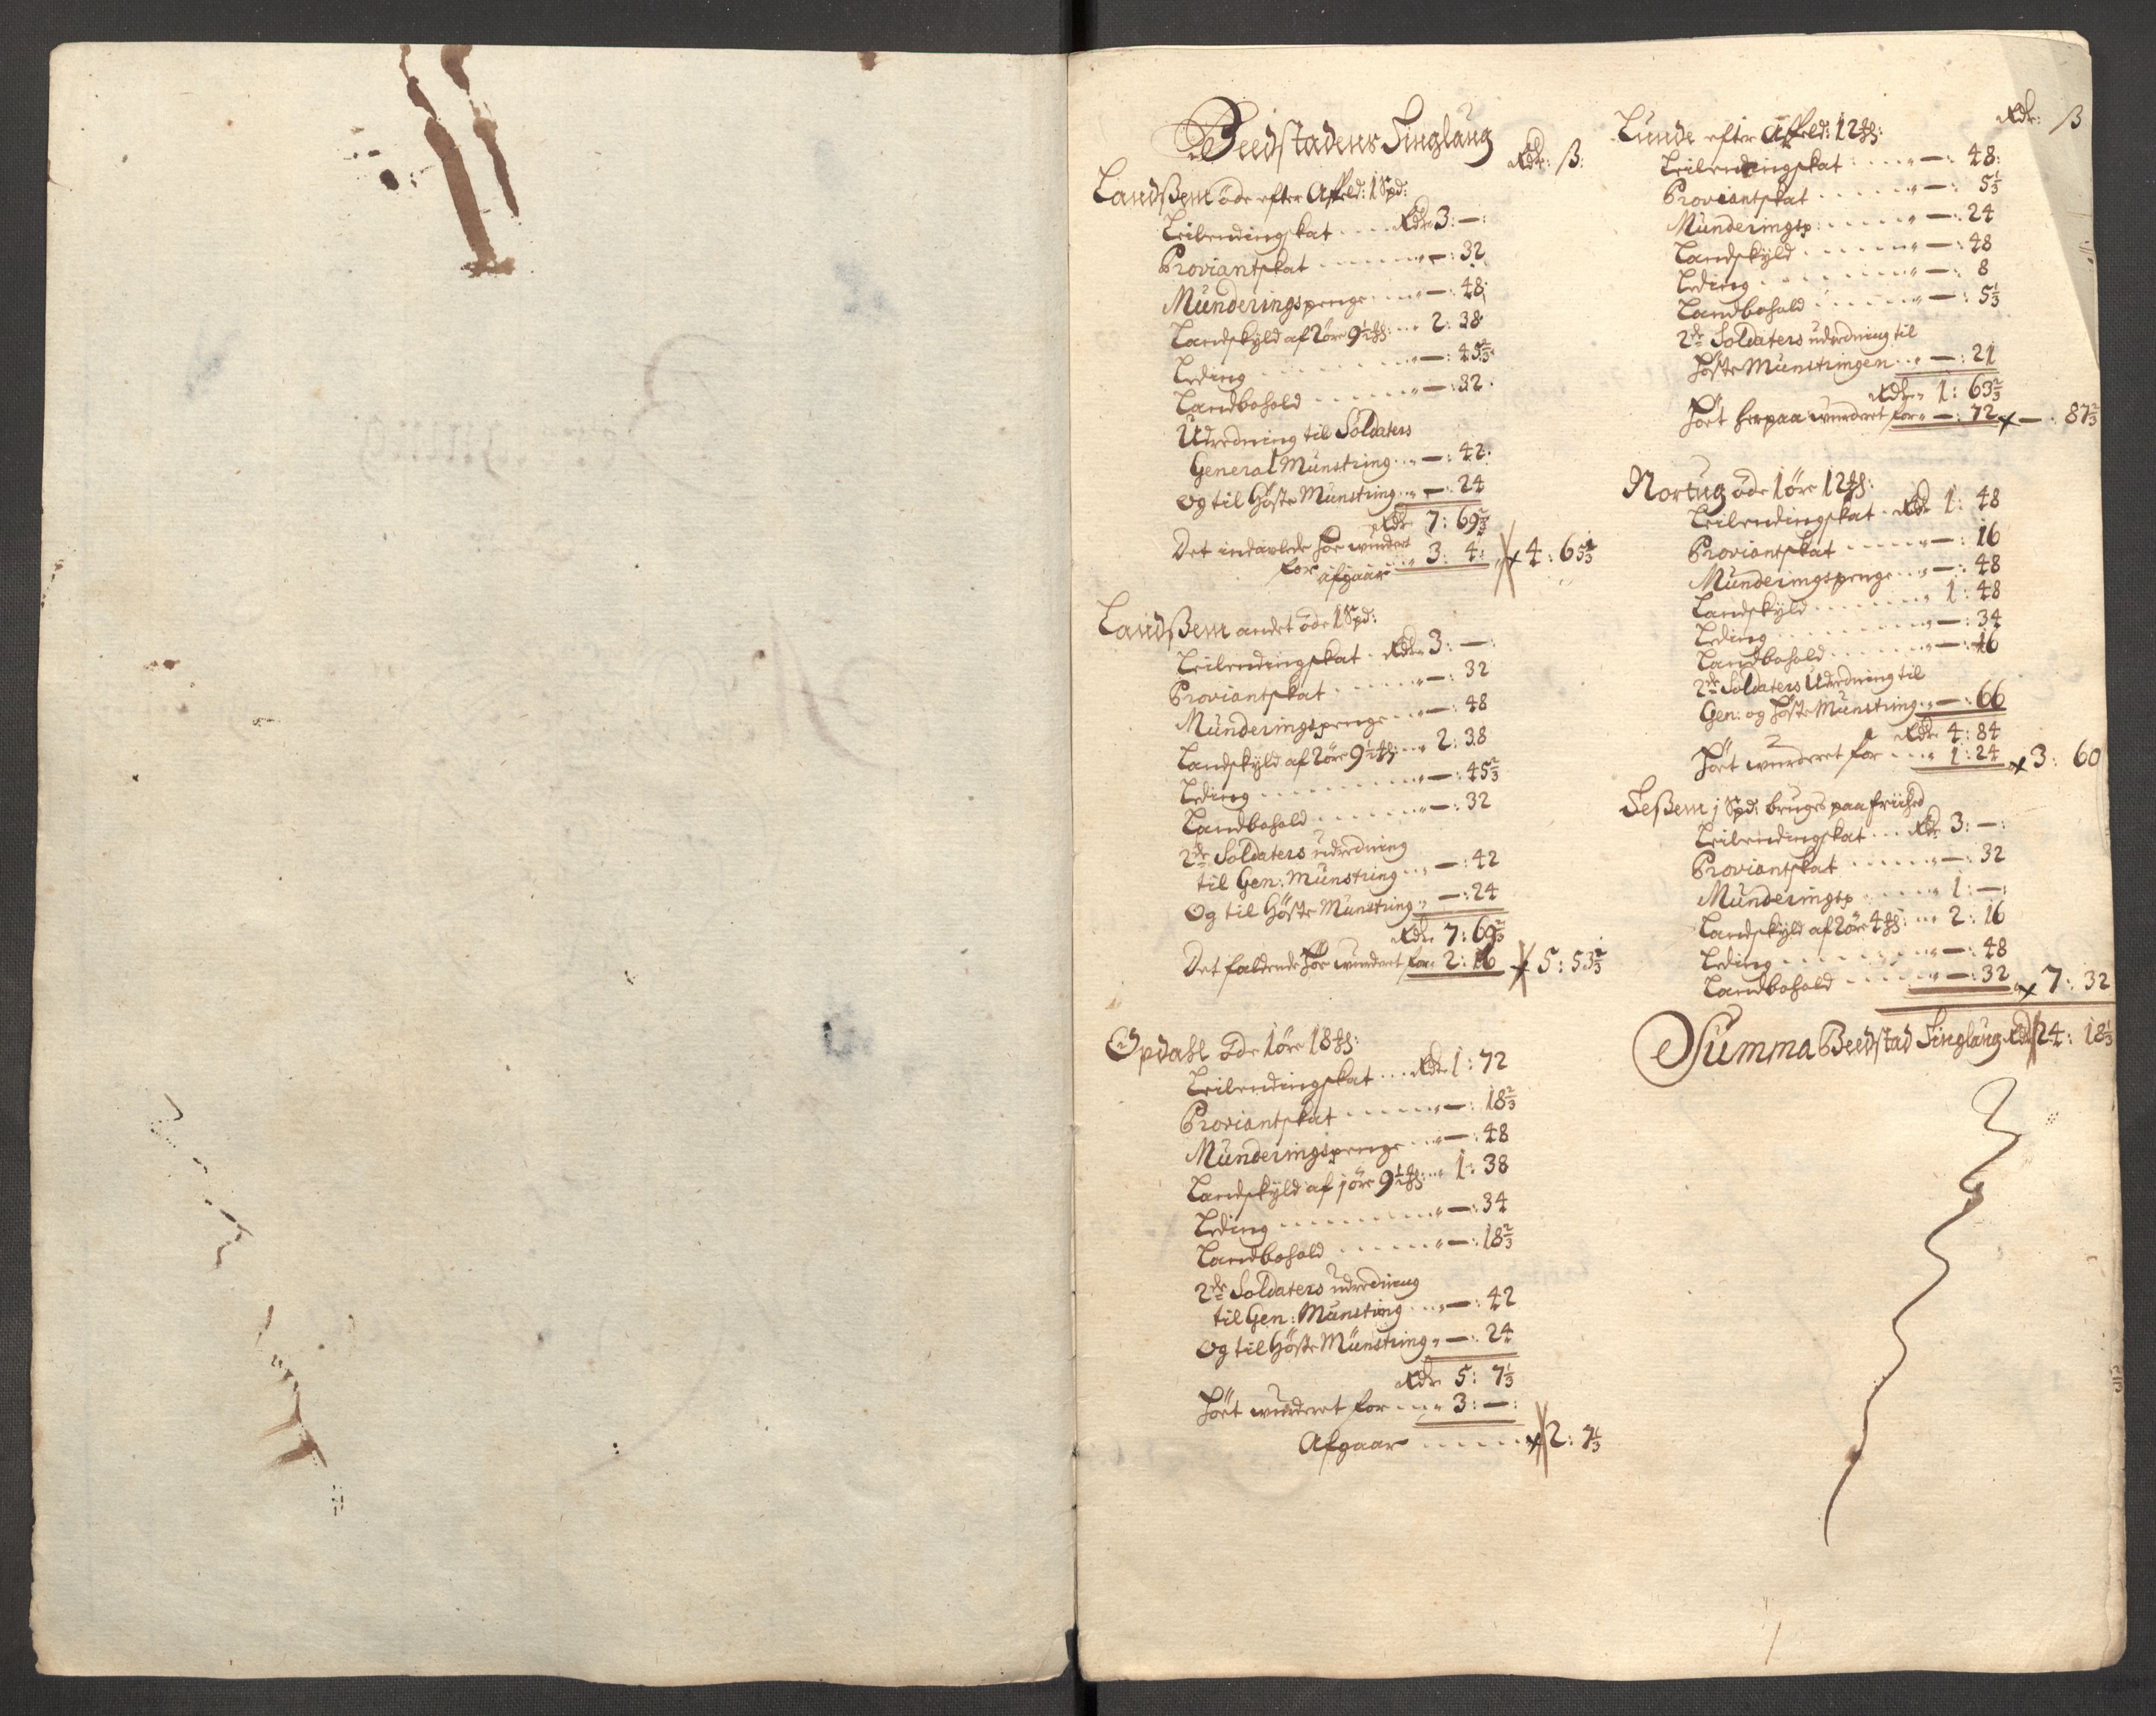 Beedstadens Tinglaug
Rdr: ß:
Landßem öde efter Affeld: 1 Spd:
Leilendingskat .... Rdr 3: —:
Proviantskat ...... " — : 32
Munderingspenge .... " — : 48
Landskyld af 2 öre 9½ ... 2: 38
Leding ....... " — : 45⅔
Landbohold ...... " — : 32
Udredning til Soldaters
General Münstring ... " — : 42
Og til Höste Münstring .. " — : 24
Rdr 7: 69⅔
Det indavlede höe wurderet
for .. " 3: 4: 4: 65⅔
afgaar
Landßem andet öde 1 Spd:
Leilendingskat .. Rdr 3: —:
Proviantskat ...... " — : 32
Munderingspenge ... " — : 48
Landskyld af 2 öre 9½ ... 2: 38
Leding ......... " — : 45⅔
Landbohold ....... " — : 32
2de Soldaters udredning
til Gen: Münstring ... — : 42
Og til Höste Münstring " — : 24
Rdr 7: 69⅔
Det faldende höe wurderet for " 2: 16 5: 53⅔
Opdahl öde 1 öre 18
Leilendingskat ... Rdr 1: 72
Proviantskat ...... " — : 18⅔
Munderingspenge ... " — : 48
Landskyld af 1 öre 9½ ... 1: 38
Leding ......... " — : 34
Landbohold ...... " — : 18⅔
2de Soldaters udredning
til Gen: Münstring .... " — : 42
Og til Höste Münstring " — : 24
Rdr 5: 7⅓
höet wurderet for .... " 3: —:
Afgaar ..... 2: 7⅓
Rdr: ß
Lunde efter Affeld: 12
Leilendingskat ..... " — : 48:
Proviantskat ...... " — : 5⅓
Munderingsp: ..... " — : 24
Landskyld ....... " — : 48
Leding ......... " — : 8
Landbohold ...... " — : 5⅓
2de Soldaters udredning til
höste Münstringen ... " — : 21
Rdr 1: 63⅔
höet herpaa wurderet for " — : 72 — : 87⅔
Nortug öde 1 öre 12
Leilendingskat . Rdr 1: 48
Proviantskat ...... " — : 16
Munderingspenge ... " — : 48
Landskyld ....... " 1: 48
Leding ........ " — : 34
Landbohold ...... " — : 16
2de Soldaters Udredning til
Gen: og höste Münstring " — : 66
Rdr 4: 84
höet wurderet for ... " 1: 24 3: 60
Leßem 1 Spd: bruges paa friihed
Leilendingskat ... Rdr 3: —:
Proviantskat ...... " — : 32
Munderingsp ..... " 1: —:
Landskyld af 2 öre 4 ... 2: 16
Leding ........ " — : 48
Landbohold ...... " — : 32 7: 32
Summa Beedstad Tinglaug Rdr 24: 18⅓